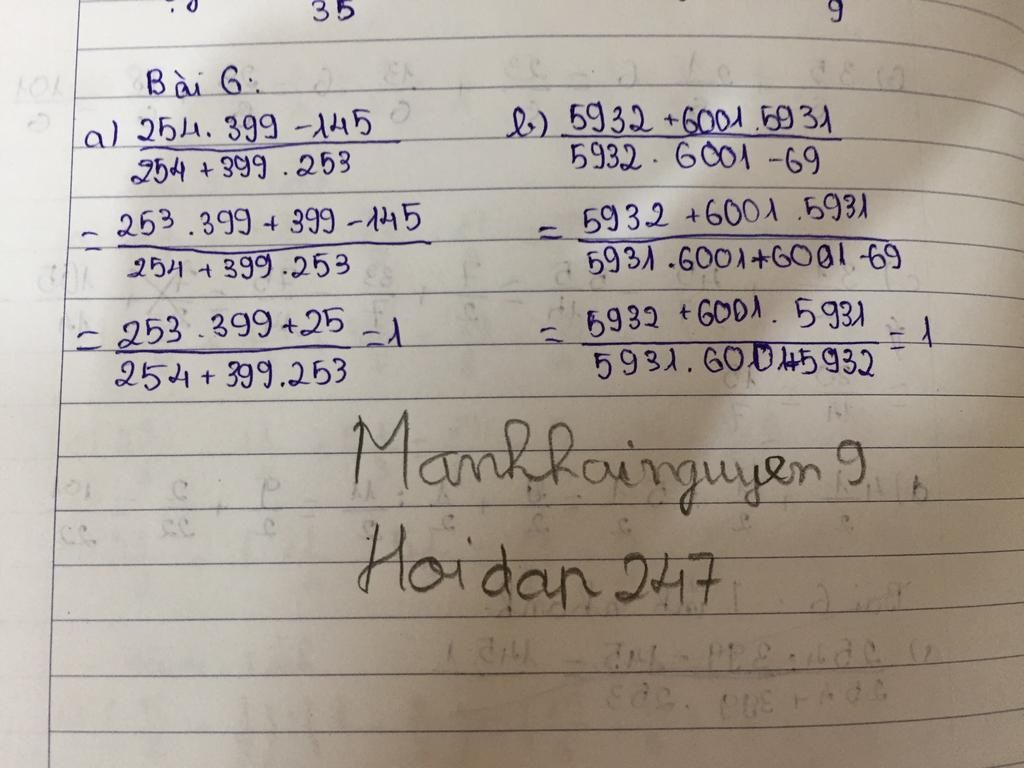 35 9
Bài 6:
a) 254.399-145 / 254+399.253 b) 5932+6001.5931 / 5932.6001-69
= 253.399+399-145 / 254+399.253 = 5932+6001.5931 / 5931.6001+6001-69
= 253.399+25 / 254+399.253 =1 = 5932+6001.5931 / 5931.6001+5932 = 1
Manhkhainguyen9
Hoidan247